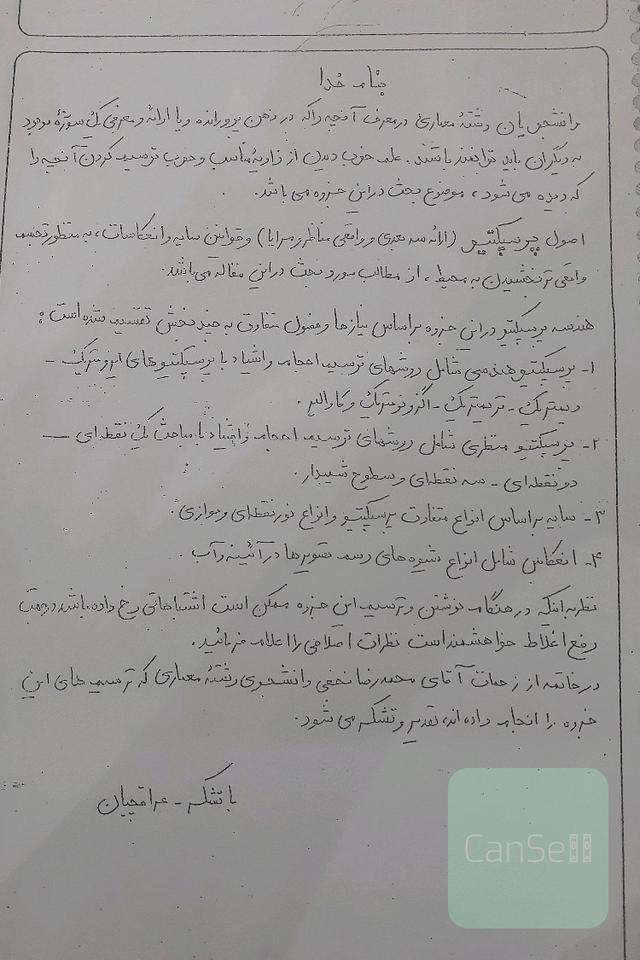 بنام خدا
دانشجویان رشتهٔ معماری در معرف آنچه را که در ذهن پرورانده و یا ارائه و معرفی یک سوژهٔ موجود
به دیگران باید توانمند باشند. علم خوب دیدن از زاویهٔ مناسب و خوب ترسیم کردن آنچه را
که دیده می‌شود، موضوع بحث در این جزوه می باشد.
اصول پرسپکتیو (ارائه سه بعدی و واقعی مناظر و مرایا) و قوانین سایه و انعکاسات، به منظور تجسم
واقعی تر بخشیدن به محیط، از مطالب مورد بحث در این مقاله می‌باشد.
هندسه پرسپکتیو در این جزوه بر اساس نیازها و فصول متفاوت به چند بخش تقسیم شده است:
۱- پرسپکتیو هندسی شامل روشهای ترسیم احجام و اشیاء با پرسپکتیوهای ایزومتریک -
دیمتریک - تریمتریک - اگزونومتریک و کاوالیر.
۲- پرسپکتیو منظری شامل روشهای ترسیم احجام و اشیاء با مباحث یک نقطه‌ای -
دو نقطه‌ای - سه نقطه‌ای و سطوح شیبدار.
۳- سایه بر اساس انواع متفاوت پرسپکتیو و انواع نور نقطه‌ای و موازی.
۴- انعکاس شامل انواع شیوه های رسم تصویرها در آئینه و آب.
نظر به اینکه در هنگام نوشتن و ترسیم این جزوه ممکن است اشتباهاتی رخ داده باشد در جهت
رفع اغلاط خواهشمند است نظرات اصلاحی را اعلام فرمائید.
در خاتمه از زحمات آقای محمدرضا نخعی دانشجوی رشتهٔ معماری که ترسیم های این
جزوه را انجام داده‌اند، تقدیر و تشکر می شود.
با تشکر - عراقچیان
CanSell